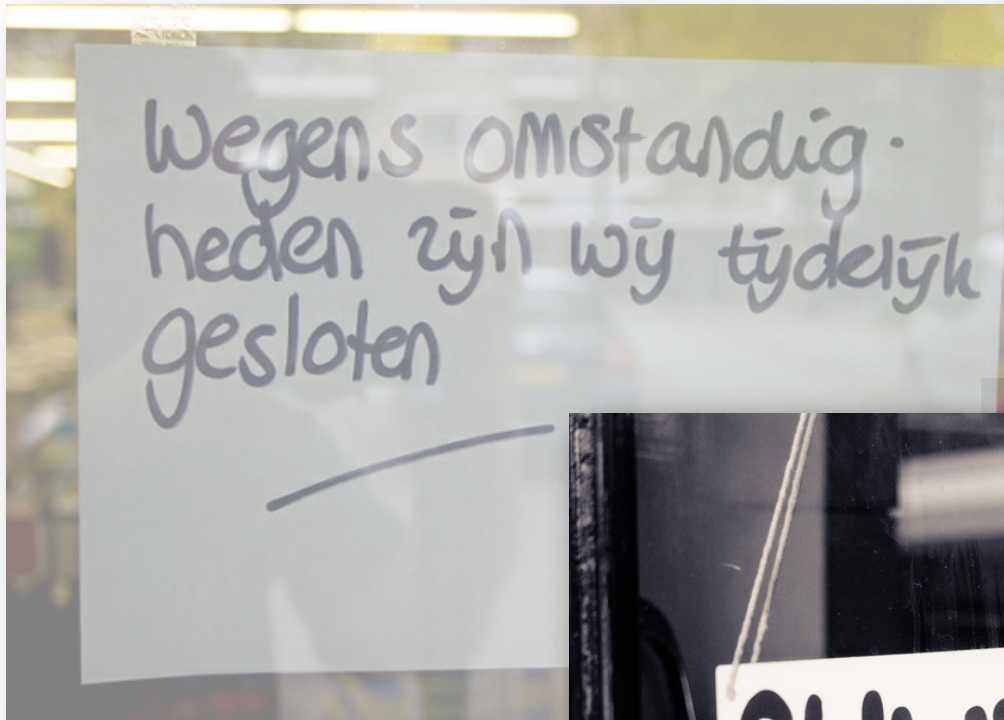 Wegens omstandig-
heden zijn wij tijdelijk
gesloten